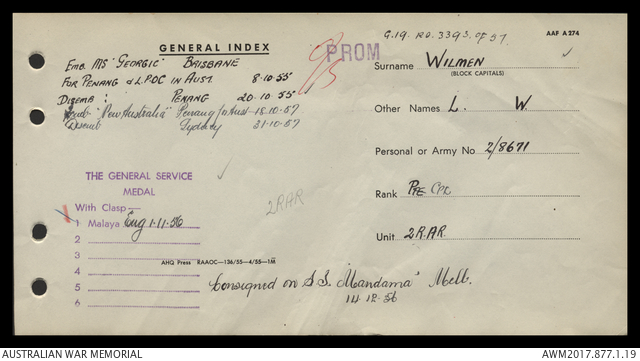 G.19. R.O. 3393 of 57.
AAF A 274
GENERAL INDEX
PROM
Emb. MS "Georgic" Brisbane
For Penang & L.P.O.C in Aust. 8.10.55
Disemb: Penang 20.10.55
Emb "New Australia" Penang for Aust 18.10.57
Disemb Sydney 31.10.57
Surname Wilmen
(BLOCK CAPITALS)
Other Names L. W.
Personal or Army No 2/8671
Rank Pte Cpl
Unit 2 R.A.R.
THE GENERAL SERVICE
MEDAL
With Clasp—
1 Malaya Eng 1.11.56
2
3
4
5
6
2RAR
AHQ Press RAAOC—136/55—4/55—1M
Consigned on S.S. "Mandama" Melb.
14.12.56
AUSTRALIAN WAR MEMORIAL
AWM2017.877.1.19